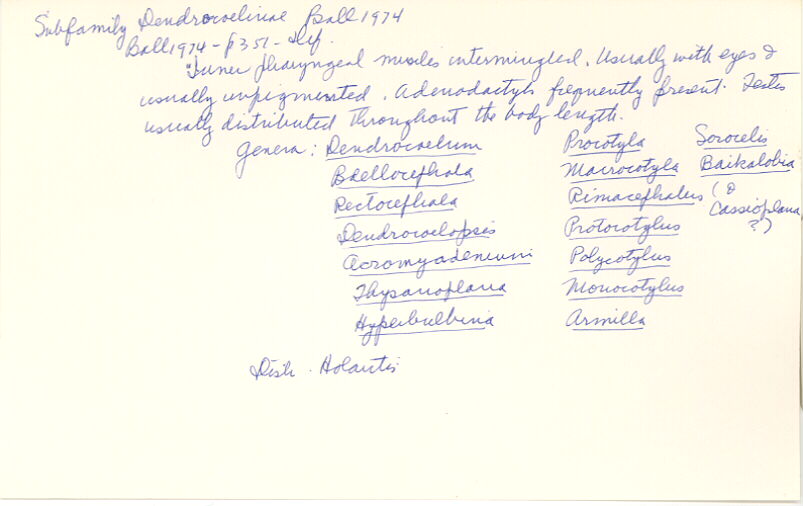 Subfamily Dendrocoelinae Ball 1974
Ball 1974 - p 351 - Def.
"Inner pharyngeal muscles intermingled. Usually with eyes &
usually unpigmented. Adenodactyls frequently present. Testes
usually distributed throughout the body length.
Genera: Dendrocoelum Procotyla Sorocelis
Bdellocephala Macrocotyla Baikalobia
Rectocephala Rimacephalus (&
Cassioplana
Dendrocoelopsis Protocotylus ?)
Acromyadenium Polycotylus
Thysanoplana Monocotylus
Hyperbulbina Armilla
Distr. Holarctic